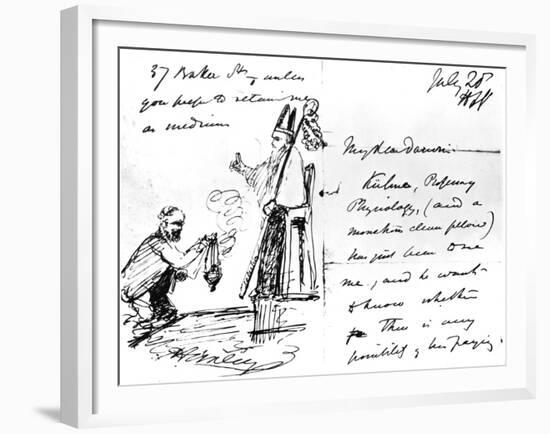 37 Baker St, unless
you
to retain me
as medium
July 20
My dear Darwin
Kühne, Professor
Physiology, (and a
clever fellow)
has just been to see
me, and he wants
to know whether
There is any
possibility of his paying